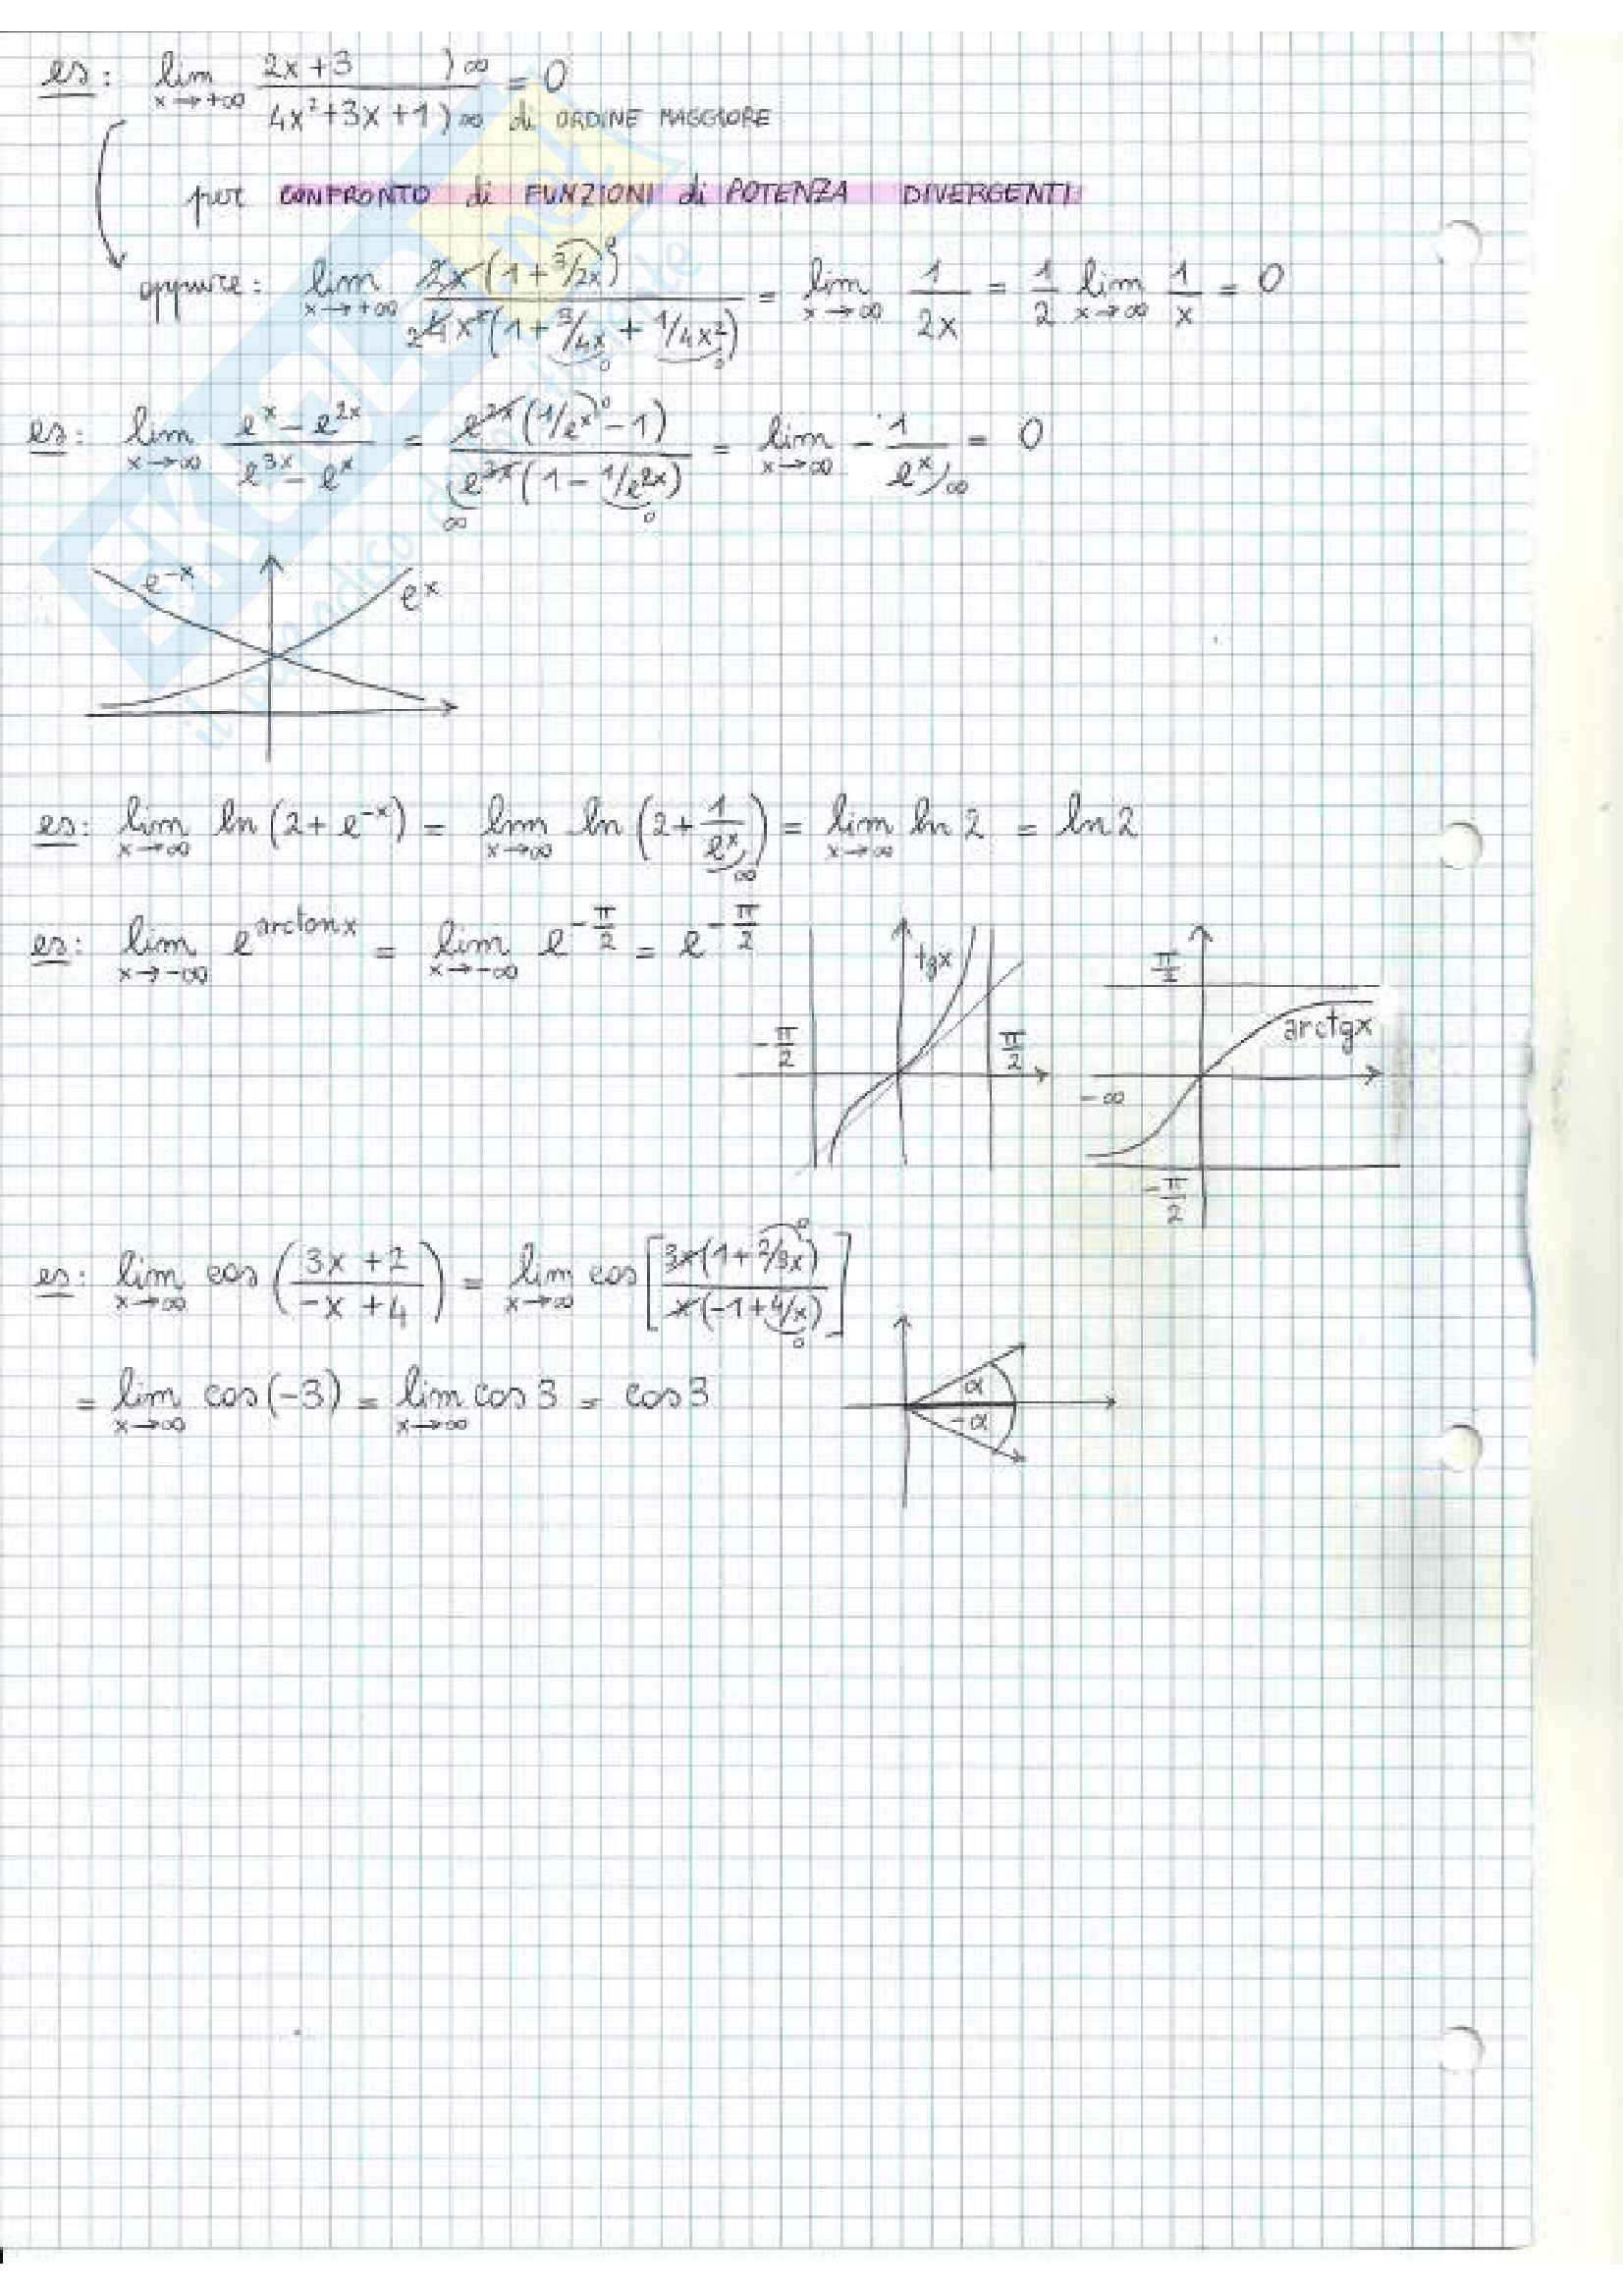 es: lim x→+∞ (2x+3 )∞ / 4x²+3x+1 )∞ di ORDINE MAGGIORE) = 0
per CONFRONTO di FUNZIONI di POTENZA DIVERGENTI
oppure: lim x→+∞ 2x(1+3/2x) / 4x²(1+3/4x+1/4x²) = lim x→∞ 1/2x = 1/2 lim x→∞ 1/x = 0
es: lim x→∞ (eˣ − e²ˣ)/(e³ˣ − eˣ) = e²ˣ(1/eˣ − 1) / e³ˣ(1 − 1/e²ˣ) = lim x→∞ − 1/eˣ = 0
e⁻ˣ eˣ
es: lim x→∞ ln(2+e⁻ˣ) = lim x→∞ ln(2+1/eˣ) = lim x→∞ ln2 = ln2
es: lim x→−∞ e^arctanx = lim x→−∞ e^−π/2 = e^−π/2
tgx −π/2 π/2
π/2 arctgx −∞ −π/2
es: lim x→∞ cos((3x+2)/(−x+4)) = lim x→∞ cos[3x(1+2/3x) / x(−1+4/x)]
= lim x→∞ cos(−3) = lim x→∞ cos3 = cos3
α −α
EKUEL.net
il paradiso dello studente